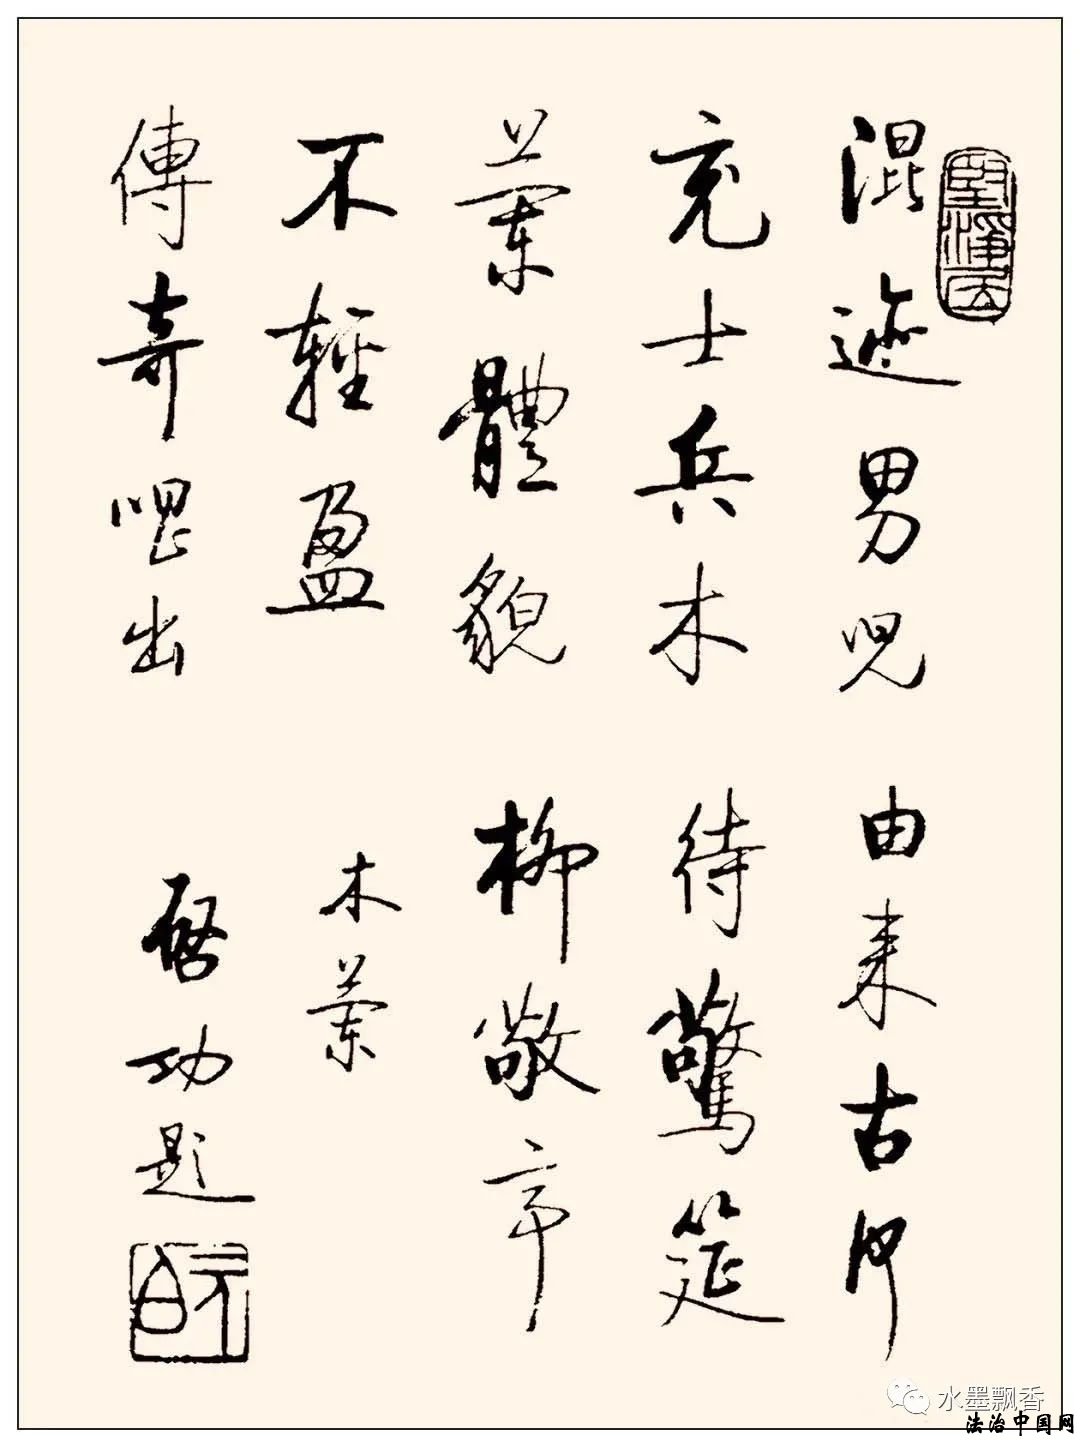 堅淨
混迹男兒
充士兵木
蘭體貌
不輕盈
傳奇出
由来古何
待驚筵
柳敬亭
木蘭
啓功題
元白
水墨飘香
法治中国网